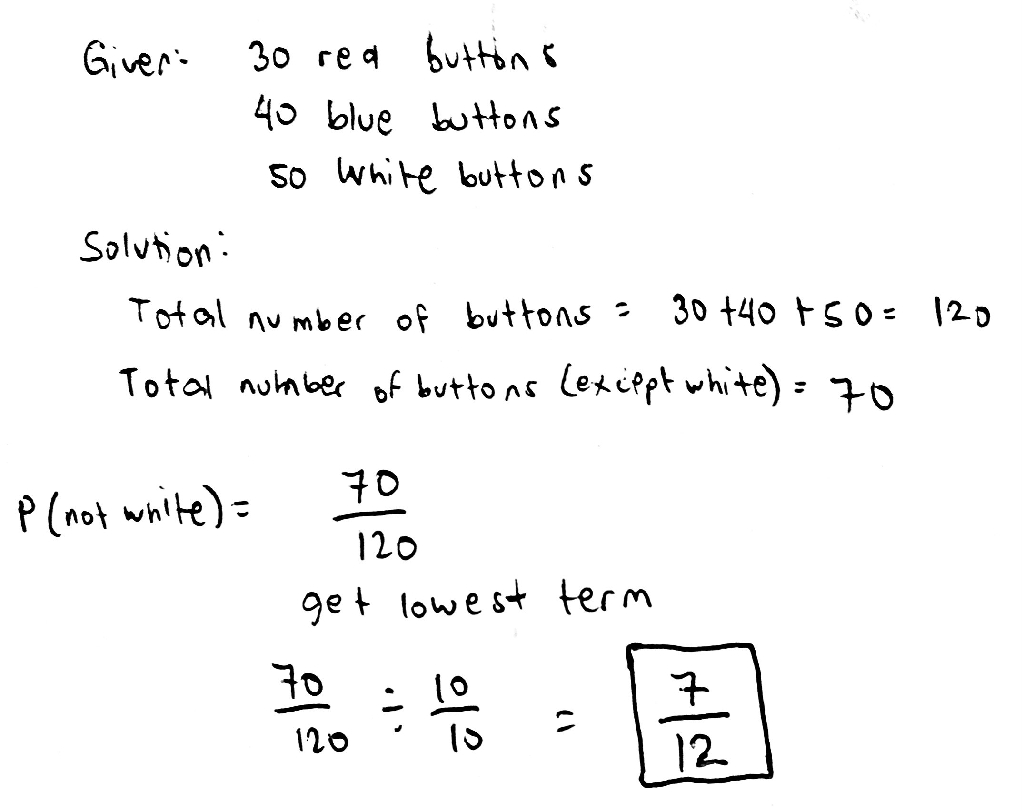 Given: 30 red buttons
40 blue buttons
50 White buttons
Solution:
Total number of buttons = 30 + 40 + 50 = 120
Total number of buttons (except white) = 70
P(not white) = 70/120
get lowest term
70/120 ÷ 10/10 = 7/12